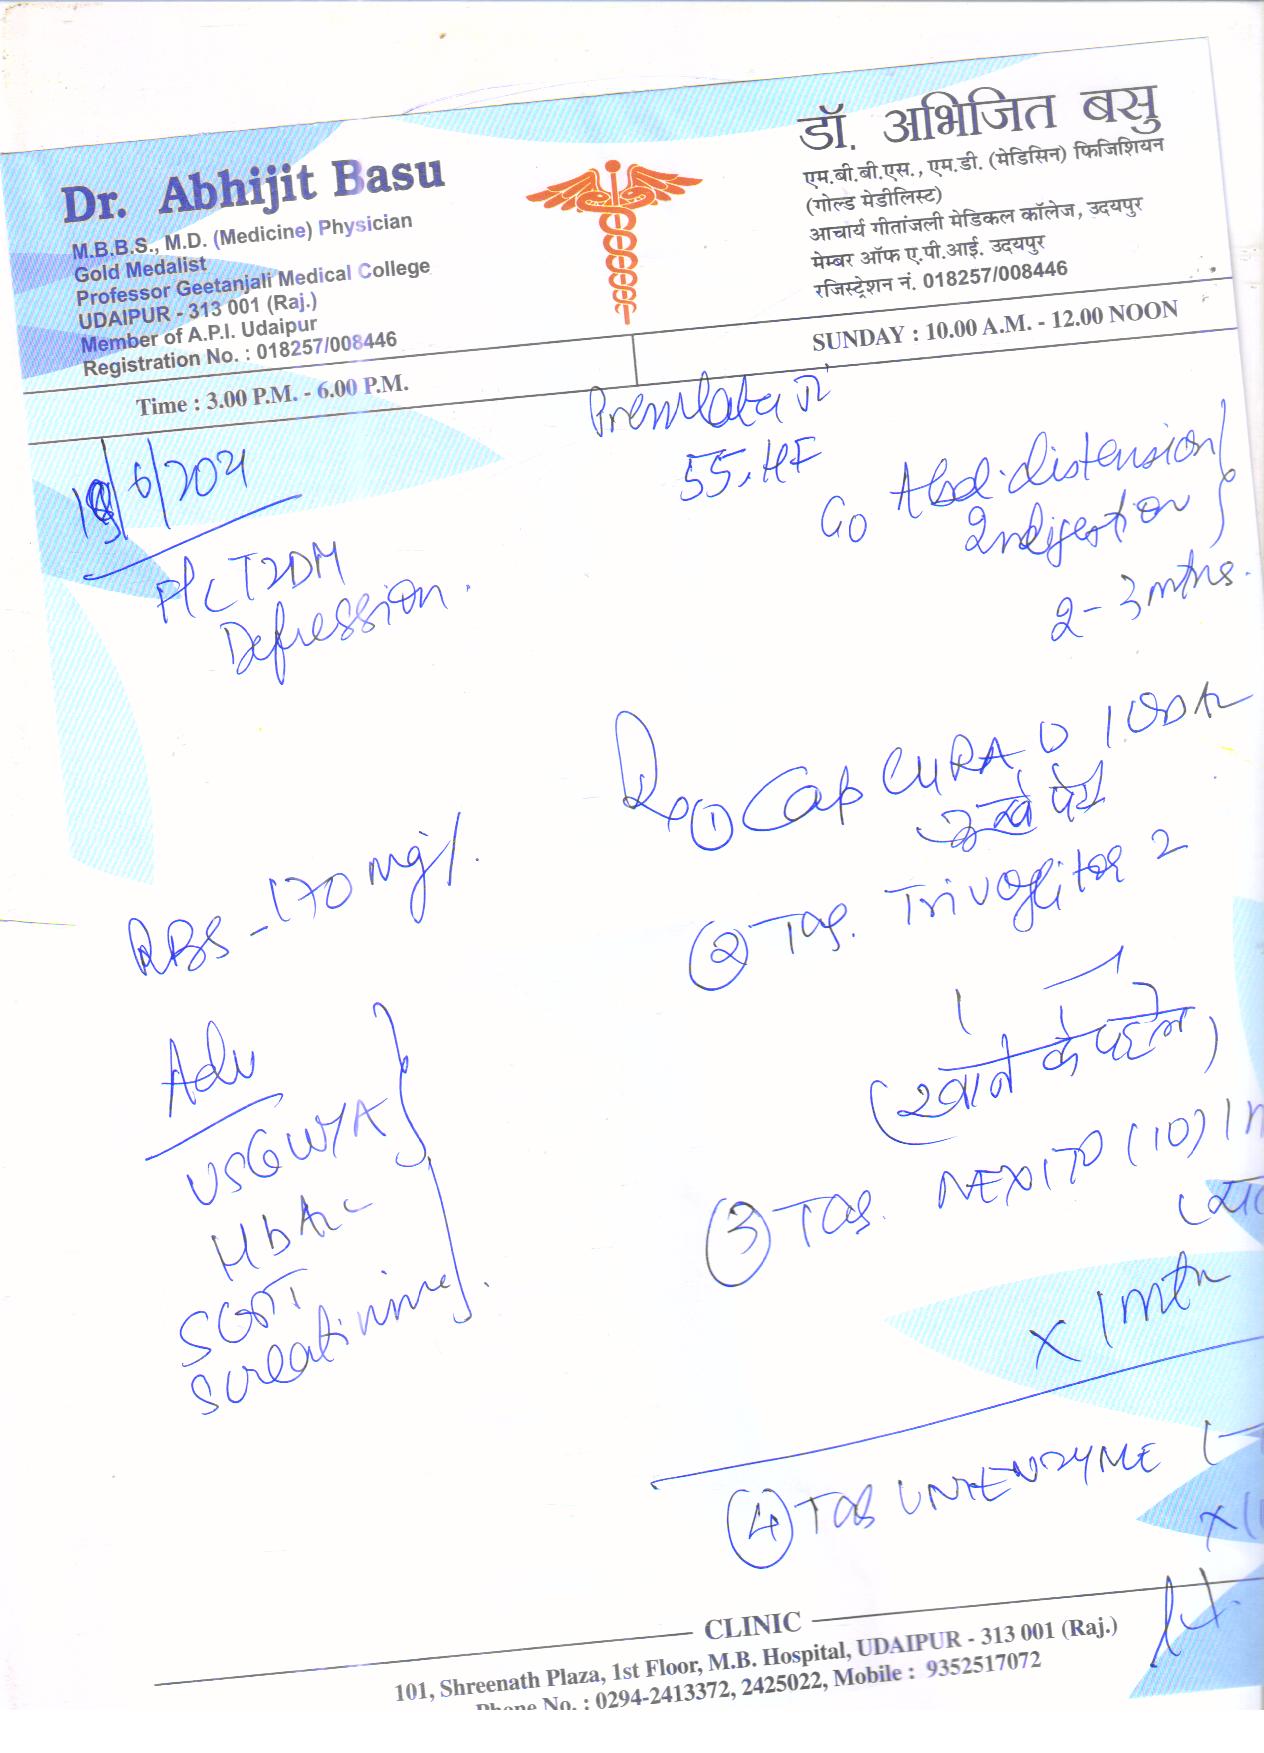 Dr. Abhijit Basu
M.B.B.S., M.D. (Medicine) Physician
Gold Medalist
Professor Geetanjali Medical College
UDAIPUR - 313 001 (Raj.)
Member of A.P.I. Udaipur
Registration No. : 018257/008446
Time : 3.00 P.M. - 6.00 P.M.
डॉ. अभिजित बसु
एम.बी.बी.एस., एम.डी. (मेडिसिन) फिजिशियन
(गोल्ड मेडीलिस्ट)
आचार्य गीतांजली मेडिकल कॉलेज, उदयपुर
मेम्बर ऑफ ए.पी.आई. उदयपुर
रजिस्ट्रेशन नं. 018257/008446
SUNDAY : 10.00 A.M. - 12.00 NOON
Premlata
/6/2021
T2DM
Depression.
C/o Abd. distension
Indigestion
2-3 mths.
RBS - 170 mg%.
Adv
USG W/A
HbA1c
SGPT
S creatinine
Rx ① Cap CURA D 1 OD
② Tab. Trivoglitor 2
1 - 1
(खाने के पहले)
③ Tab. NEXITO (10) 1
x 1 mth
④ Tab UNIENZYME 1-
CLINIC
101, Shreenath Plaza, 1st Floor, M.B. Hospital, UDAIPUR - 313 001 (Raj.)
Phone No. : 0294-2413372, 2425022, Mobile : 9352517072